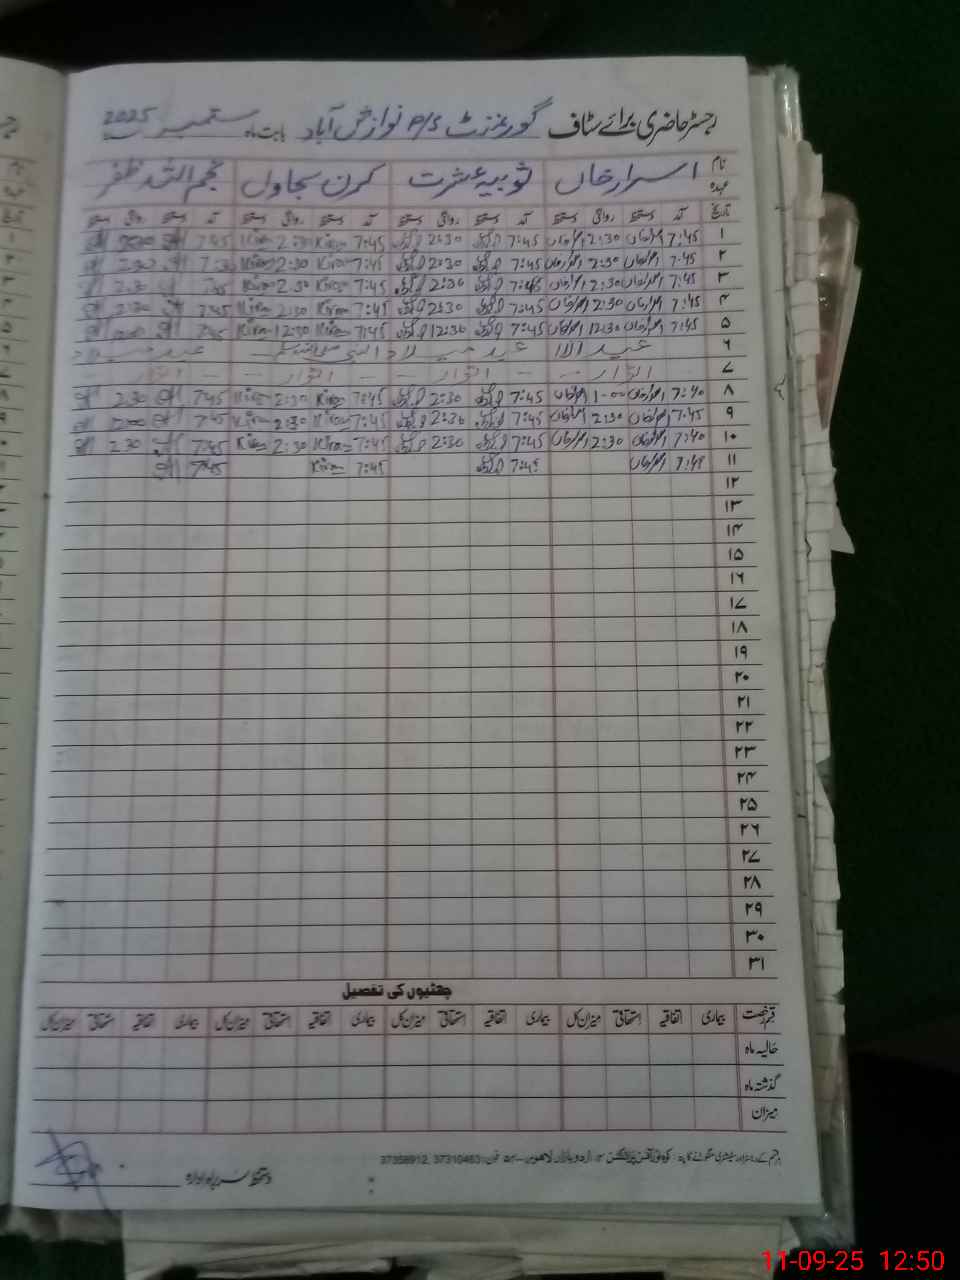 رجسٹر حاضری برائے سٹاف گورنمنٹ P/S نوازش آباد بابت ماہ ستمبر 2025
نام اسرار خاں ثوبیہ عشرت کرن سجاول نجم الثمد ظفر
عہدہ
تاریخ آمد دستخط روانگی دستخط آمد دستخط روانگی دستخط آمد دستخط روانگی دستخط آمد دستخط روانگی دستخط
۱ 7:45 اسرارخاں 2:30 اسرارخاں 7:45 2:30 7:45 Kiran 2:30 Kiran 7:45
۲ 7:45 اسرارخاں 2:30 اسرارخاں 7:45 2:30 7:45 Kiran 2:30 Kiran 2:30
۳ 7:45 اسرارخاں 2:30 اسرارخاں 7:45 2:30 7:45 Kiran 2:30 Kiran 7:45 2:30
۴ 7:45 اسرارخاں 2:30 اسرارخاں 7:45 2:30 7:45 Kiran 2:30 Kiran 7:45 2:30
۵ 7:45 اسرارخاں 12:30 اسرارخاں 7:45 12:30 7:45 Kiran 12:30 Kiran 7:45
۶ عید میلاد النبی صلی اللہ علیہ وسلم عید میلاد
۷ اتوار - - اتوار - - اتوار - - اتوار
۸ 7:40 اسرارخاں 1-00 اسرارخاں 7:45 2:30 7:45 Kiran 2:30 Kiran 7:45 2:30
۹ 7:45 اسرارخاں 2:30 اسرارخاں 7:45 2:30 7:45 Kiran 2:30 Kiran 7:45
۱۰ 7:40 اسرارخاں 2:30 اسرارخاں 7:45 2:30 7:45 Kiran 2:30 Kiran 7:45 2:30
۱۱ اسرارخاں 7:45 7:45 Kiran 7:45
۱۲
۱۳
۱۴
۱۵
۱۶
۱۷
۱۸
۱۹
۲۰
۲۱
۲۲
۲۳
۲۴
۲۵
۲۶
۲۷
۲۸
۲۹
۳۰
۳۱
چھٹیوں کی تفصیل
قسم رخصت بیماری اتفاقیہ استحقاقی میزان کل بیماری اتفاقیہ استحقاقی میزان کل بیماری اتفاقیہ استحقاقی میزان کل بیماری اتفاقیہ استحقاقی میزان کل
حالیہ ماہ
گذشتہ ماہ
میزان
ہر قسم کے رجسٹر اور سٹیشنری منگوانے کا پتہ: اردو بازار لاہور فون: 37310463, 37358912
دستخط سربراہ ادارہ
11-09-25 12:50